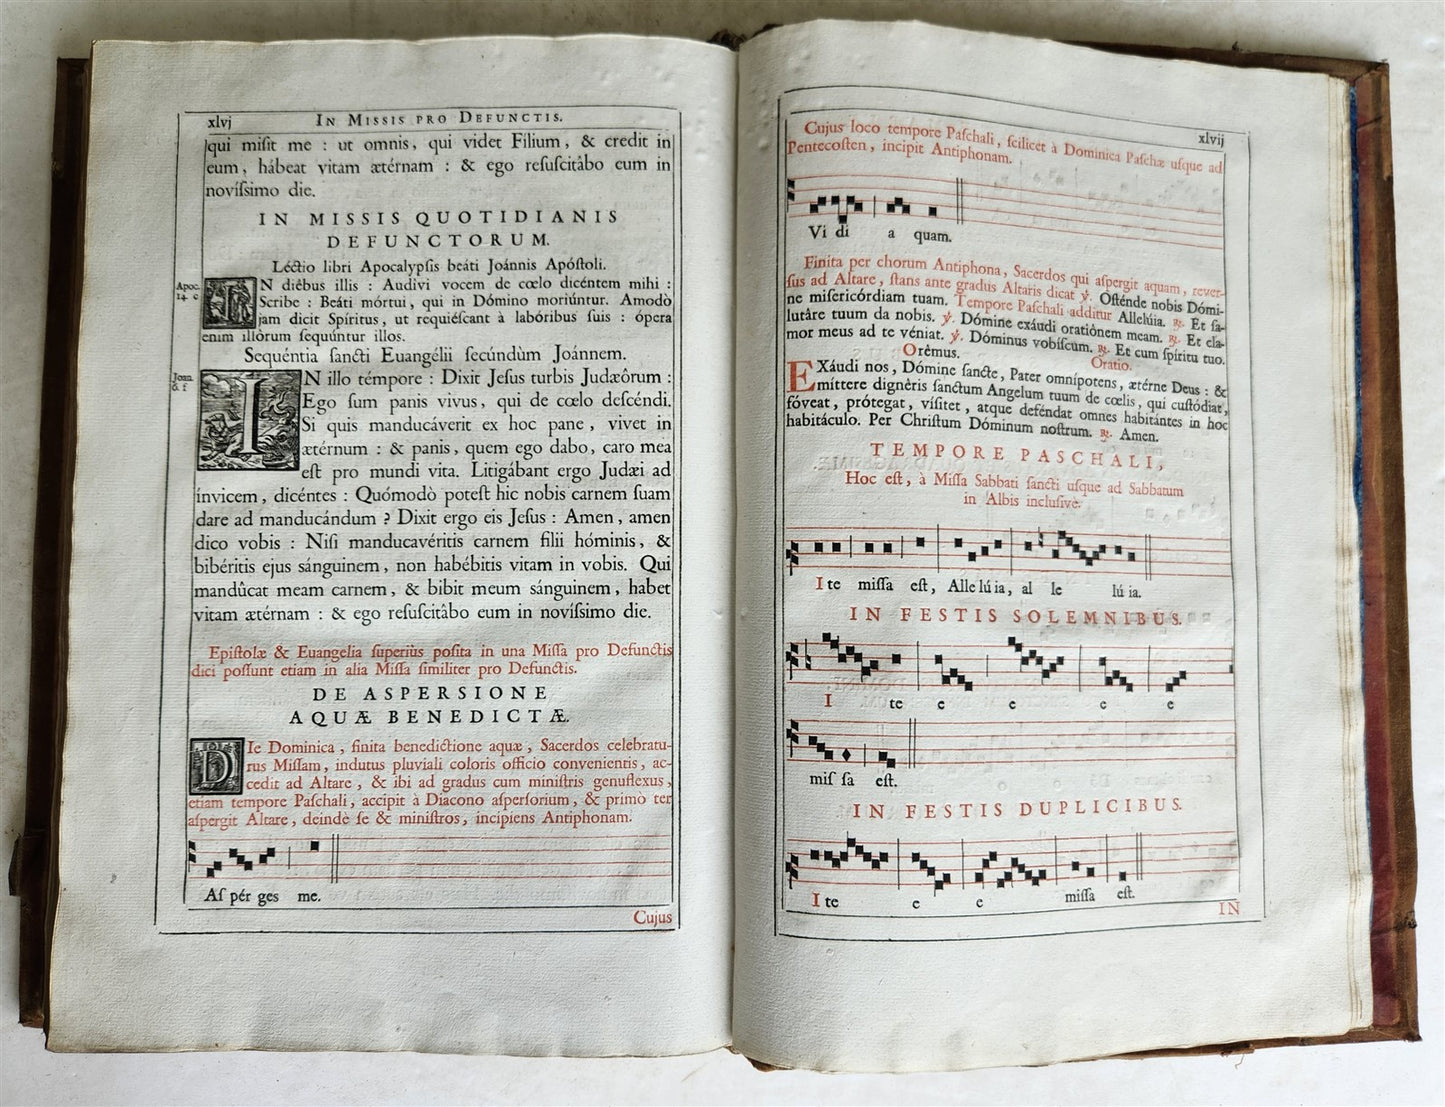 xlvj IN MISSIS PRO DEFUNCTIS.
qui misit me : ut omnis, qui videt Filium, & credit in
eum, hábeat vitam ætérnam : & ego resuscitâbo eum in
novíssimo die.
IN MISSIS QUOTIDIANIS
DEFUNCTORUM.
Léctio libri Apocalypsis beáti Joánnis Apóstoli.
Apoc.
14 c
IN diêbus illis : Audivi vocem de cœlo dicéntem mihi :
Scribe : Beáti mórtui, qui in Dómino moriúntur. Amodò
jam dicit Spíritus, ut requiéscant à labóribus suis : ópera
enim illórum sequúntur illos.
Sequéntia sancti Euangélii secúndùm Joánnem.
Joan.
6. f
IN illo témpore : Dixit Jesus turbis Judæôrum :
Ego sum panis vivus, qui de cœlo descéndi.
Si quis manducáverit ex hoc pane, vivet in
ætérnum : & panis, quem ego dabo, caro mea
est pro mundi vita. Litigábant ergo Judæi ad
ínvicem, dicéntes : Quómodò potest hic nobis carnem suam
dare ad manducándum ? Dixit ergo eis Jesus : Amen, amen
dico vobis : Nisi manducavéritis carnem filii hóminis, &
bibéritis ejus sánguinem, non habébitis vitam in vobis. Qui
mandûcat meam carnem, & bibit meum sánguinem, habet
vitam ætérnam : & ego resuscitâbo eum in novíssimo die.
Epistolæ & Euangelia superiùs posita in una Missa pro Defunctis
dici possunt etiam in alia Missa similiter pro Defunctis.
DE ASPERSIONE
AQUÆ BENEDICTÆ.
DIe Dominica, finita benedictione aquæ, Sacerdos celebratu-
rus Missam, indutus pluviali coloris officio convenientis, ac-
cedit ad Altare, & ibi ad gradus cum ministris genuflexus,
etiam tempore Paschali, accipit à Diacono aspersorium, & primò ter
aspergit Altare, deindè se & ministros, incipiens Antiphonam.
As pér ges me.
Cujus
xlvij
Cujus loco tempore Paschali, scilicet à Dominica Paschæ usque ad
Pentecosten, incipit Antiphonam.
Vi di a quam.
Finita per chorum Antiphona, Sacerdos qui aspergit aquam, rever-
sus ad Altare, stans ante gradus Altaris dicat ℣. Osténde nobis Dómi-
ne misericórdiam tuam. Tempore Paschali additur Allelúia. ℟. Et sa-
lutâre tuum da nobis. ℣. Dómine exáudi oratiônem meam. ℟. Et cla-
mor meus ad te véniat. ℣. Dóminus vobíscum. ℟. Et cum spíritu tuo.
Orêmus. Oratio.
EXáudi nos, Dómine sancte, Pater omnípotens, ætérne Deus : &
emíttere dignêris sanctum Angelum tuum de cœlis, qui custódiat,
fóveat, prótegat, vísitet, atque deféndat omnes habitántes in hoc
habitáculo. Per Christum Dóminum nostrum. ℟. Amen.
TEMPORE PASCHALI,
Hoc est, à Missa Sabbati sancti usque ad Sabbatum
in Albis inclusivè.
I te missa est, Alle lú ia, al le lú ia.
IN FESTIS SOLEMNIBUS.
I te e e e e
mis sa est.
IN FESTIS DUPLICIBUS.
I te e e missa est.
IN